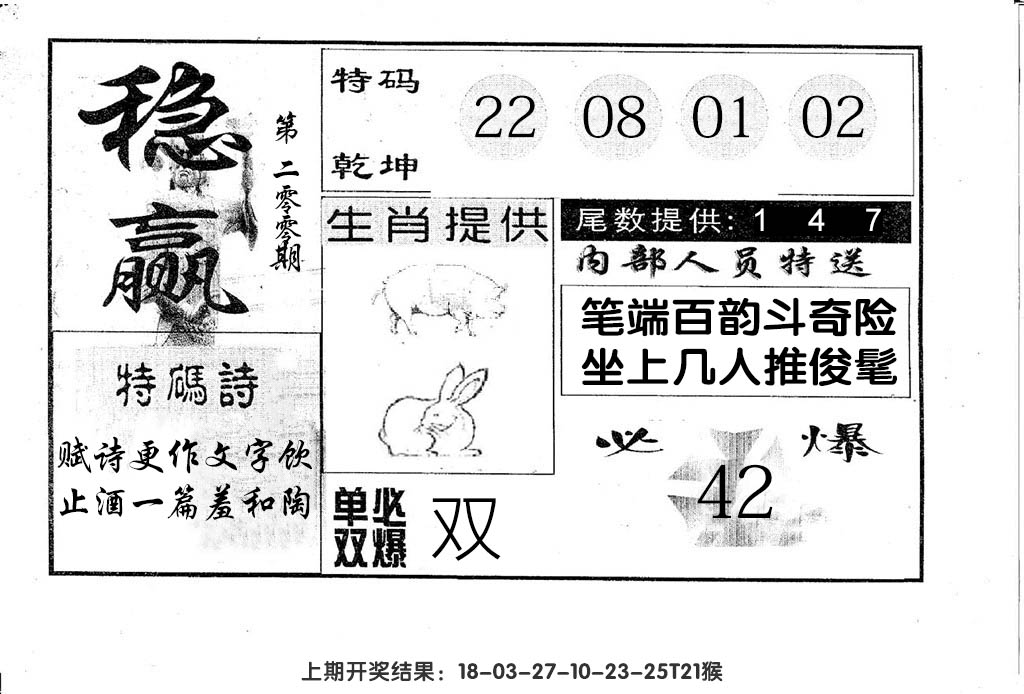 稳赢
第二零零期
特码
乾坤
22 08 01 02
生肖提供
尾数提供: 1 4 7
内部人员特送
笔端百韵斗奇险
坐上几人推俊髦
特碼詩
赋诗更作文字饮
止酒一篇羞和陶
必爆
42
单双必爆
双
上期开奖结果：18-03-27-10-23-25T21猴